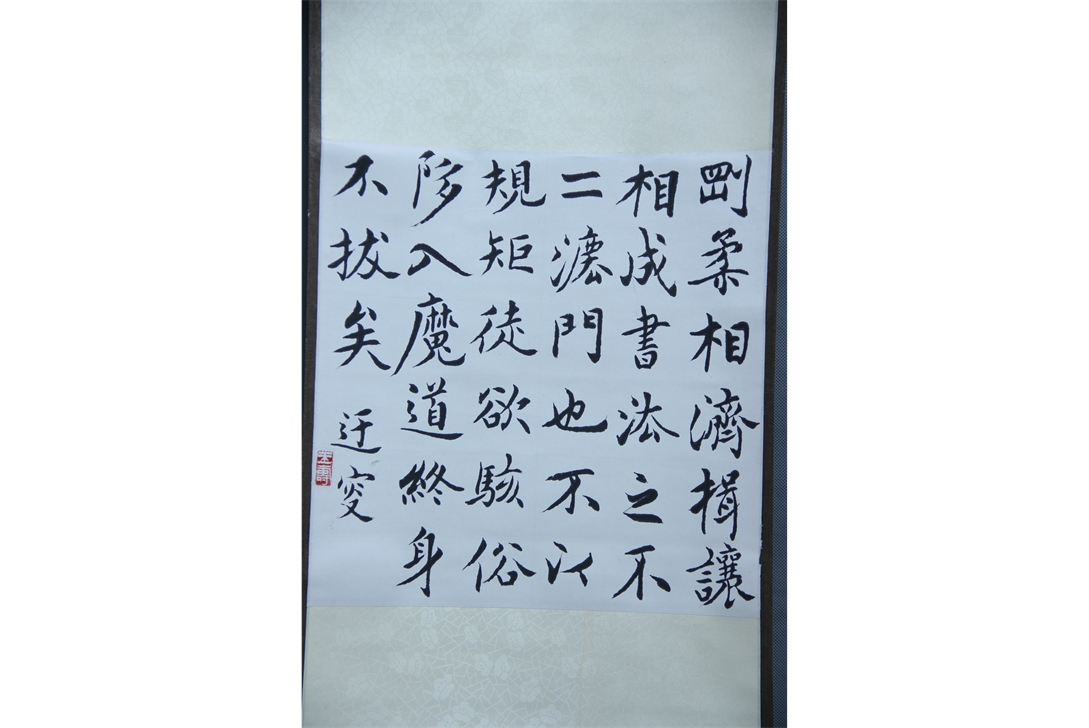 剛柔相濟揖讓
相成書法之不
二灋門也不以
規矩徒欲駭俗
陊入魔道終身
不拔矣 迂叟